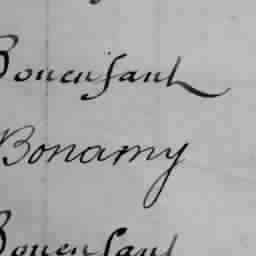 Bonenfant
Bonamy
Bonenfant